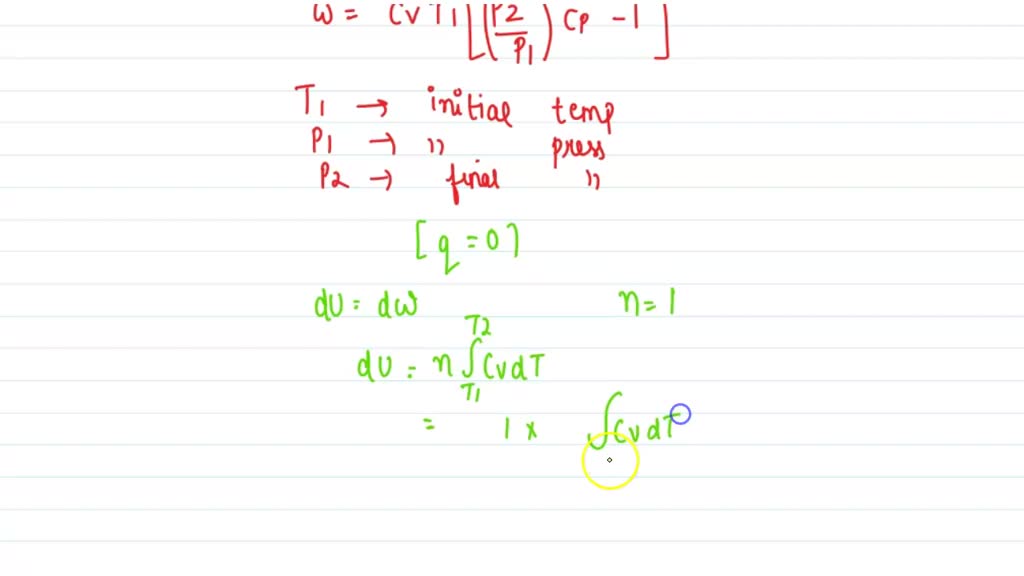 W = CvT1[(P2/P1)Cp - 1]
T1 → initial temp
P1 → " press
P2 → final "
[q = 0]
dU = dw n = 1
dU = n∫T1T2 CvdT
= 1 x ∫CvdT